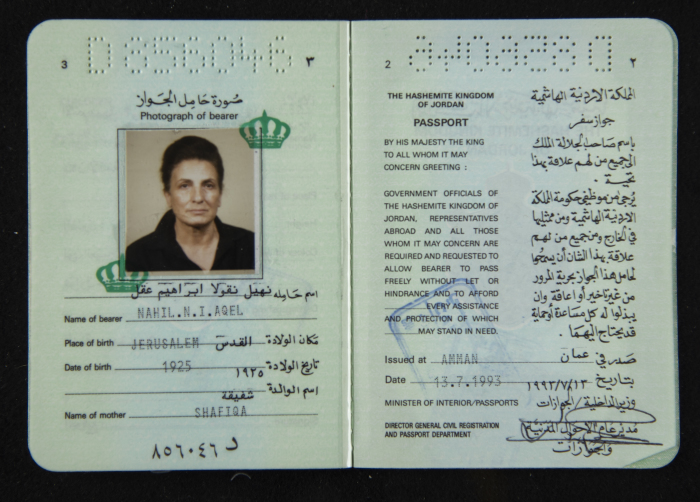 3 D 856046 ٣
صورة حامل الجواز
Photograph of bearer
اسم حامله نهيل نقولا ابراهيم عقل
Name of bearer NAHIL.N.I.AQEL
مكان الولادة القدس
Place of birth JERUSALEM
تاريخ الولادة ١٩٢٥
Date of birth 1925
اسم الوالدة شفيقة
Name of mother SHAFIQA
د ٨٥٦٠٤٦
2 ٢
THE HASHEMITE KINGDOM
OF JORDAN
PASSPORT
BY HIS MAJESTY THE KING
TO ALL WHOM IT MAY
CONCERN GREETING :
GOVERNMENT OFFICIALS OF
THE HASHEMITE KINGDOM OF
JORDAN, REPRESENTATIVES
ABROAD AND ALL THOSE
WHOM IT MAY CONCERN ARE
REQUIRED AND REQUESTED TO
ALLOW BEARER TO PASS
FREELY WITHOUT LET OR
HINDRANCE AND TO AFFORD
EVERY ASSISTANCE
AND PROTECTION OF WHICH
MAY STAND IN NEED.
المملكة الاردنية الهاشمية
جواز سفر
باسم صاحب الجلالة الملك
الى جميع من لهم علاقة بهذا
تحية .
يرجى من موظفي حكومة المملكة
الاردنية الهاشمية ومن ممثليها
في الخارج ومن جميع من لهم
علاقة بهذا الشأن أن يسمحوا
لحامل هذا الجواز بحرية المرور
من غير تأخير أو اعاقة وان
يبذلوا له كل مساعدة أو حماية
قد يحتاج اليهما .
Issued at AMMAN صدر في عمان
Date 13.7.1993 بتاريخ ١٩٩٣/٧/١٣
MINISTER OF INTERIOR/PASSPORTS وزير الداخلية/الجوازات
DIRECTOR GENERAL CIVIL REGISTRATION مدير عام الاحوال المدنية
AND PASSPORT DEPARTMENT والجوازات